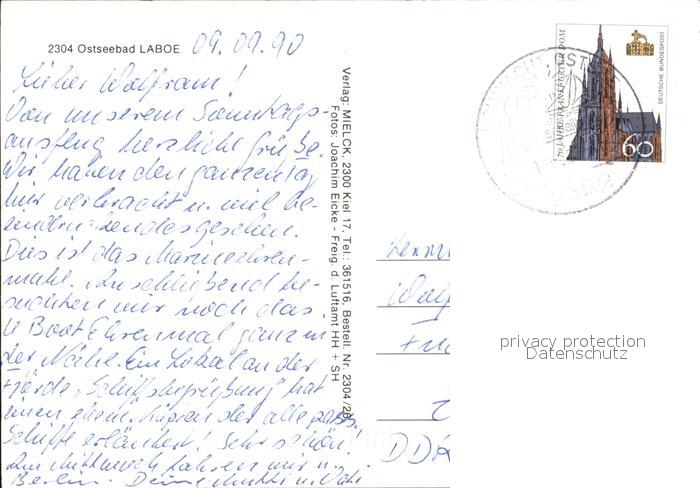 2304 Ostseebad LABOE 09.09.90
Lieber Wolfram!
Von unserem Sonntags-
ausflug herzliche Grüße.
Wir haben den ganzen Tag
hier verbracht u. viel be-
eindruckendes gesehen.
Dies ist das Marineehren-
mahl. Anschließend be-
suchten wir noch das
U Boot Ehrenmal ganz in
der Nähe. Ein Lokal an der
Förde „Schiffsbegrüßung" hat
einen ehem. Kapitän der alle pass.
Schiffe erläutert! Sehr schön!
Am Mittwoch fahren wir n.
Berlin. Deine Mutti u. Vati
Verlag: MIELCK, 2300 Kiel 17, Tel.: 361516, Bestell. Nr. 2304/28
Fotos: Joachim Eicke - Freig. d. Luftamt HH + SH
750 JAHRE FRANKFURTER DOM
DEUTSCHE BUNDESPOST
60
Herrn
Wolf
DDR
privacy protection
Datenschutz